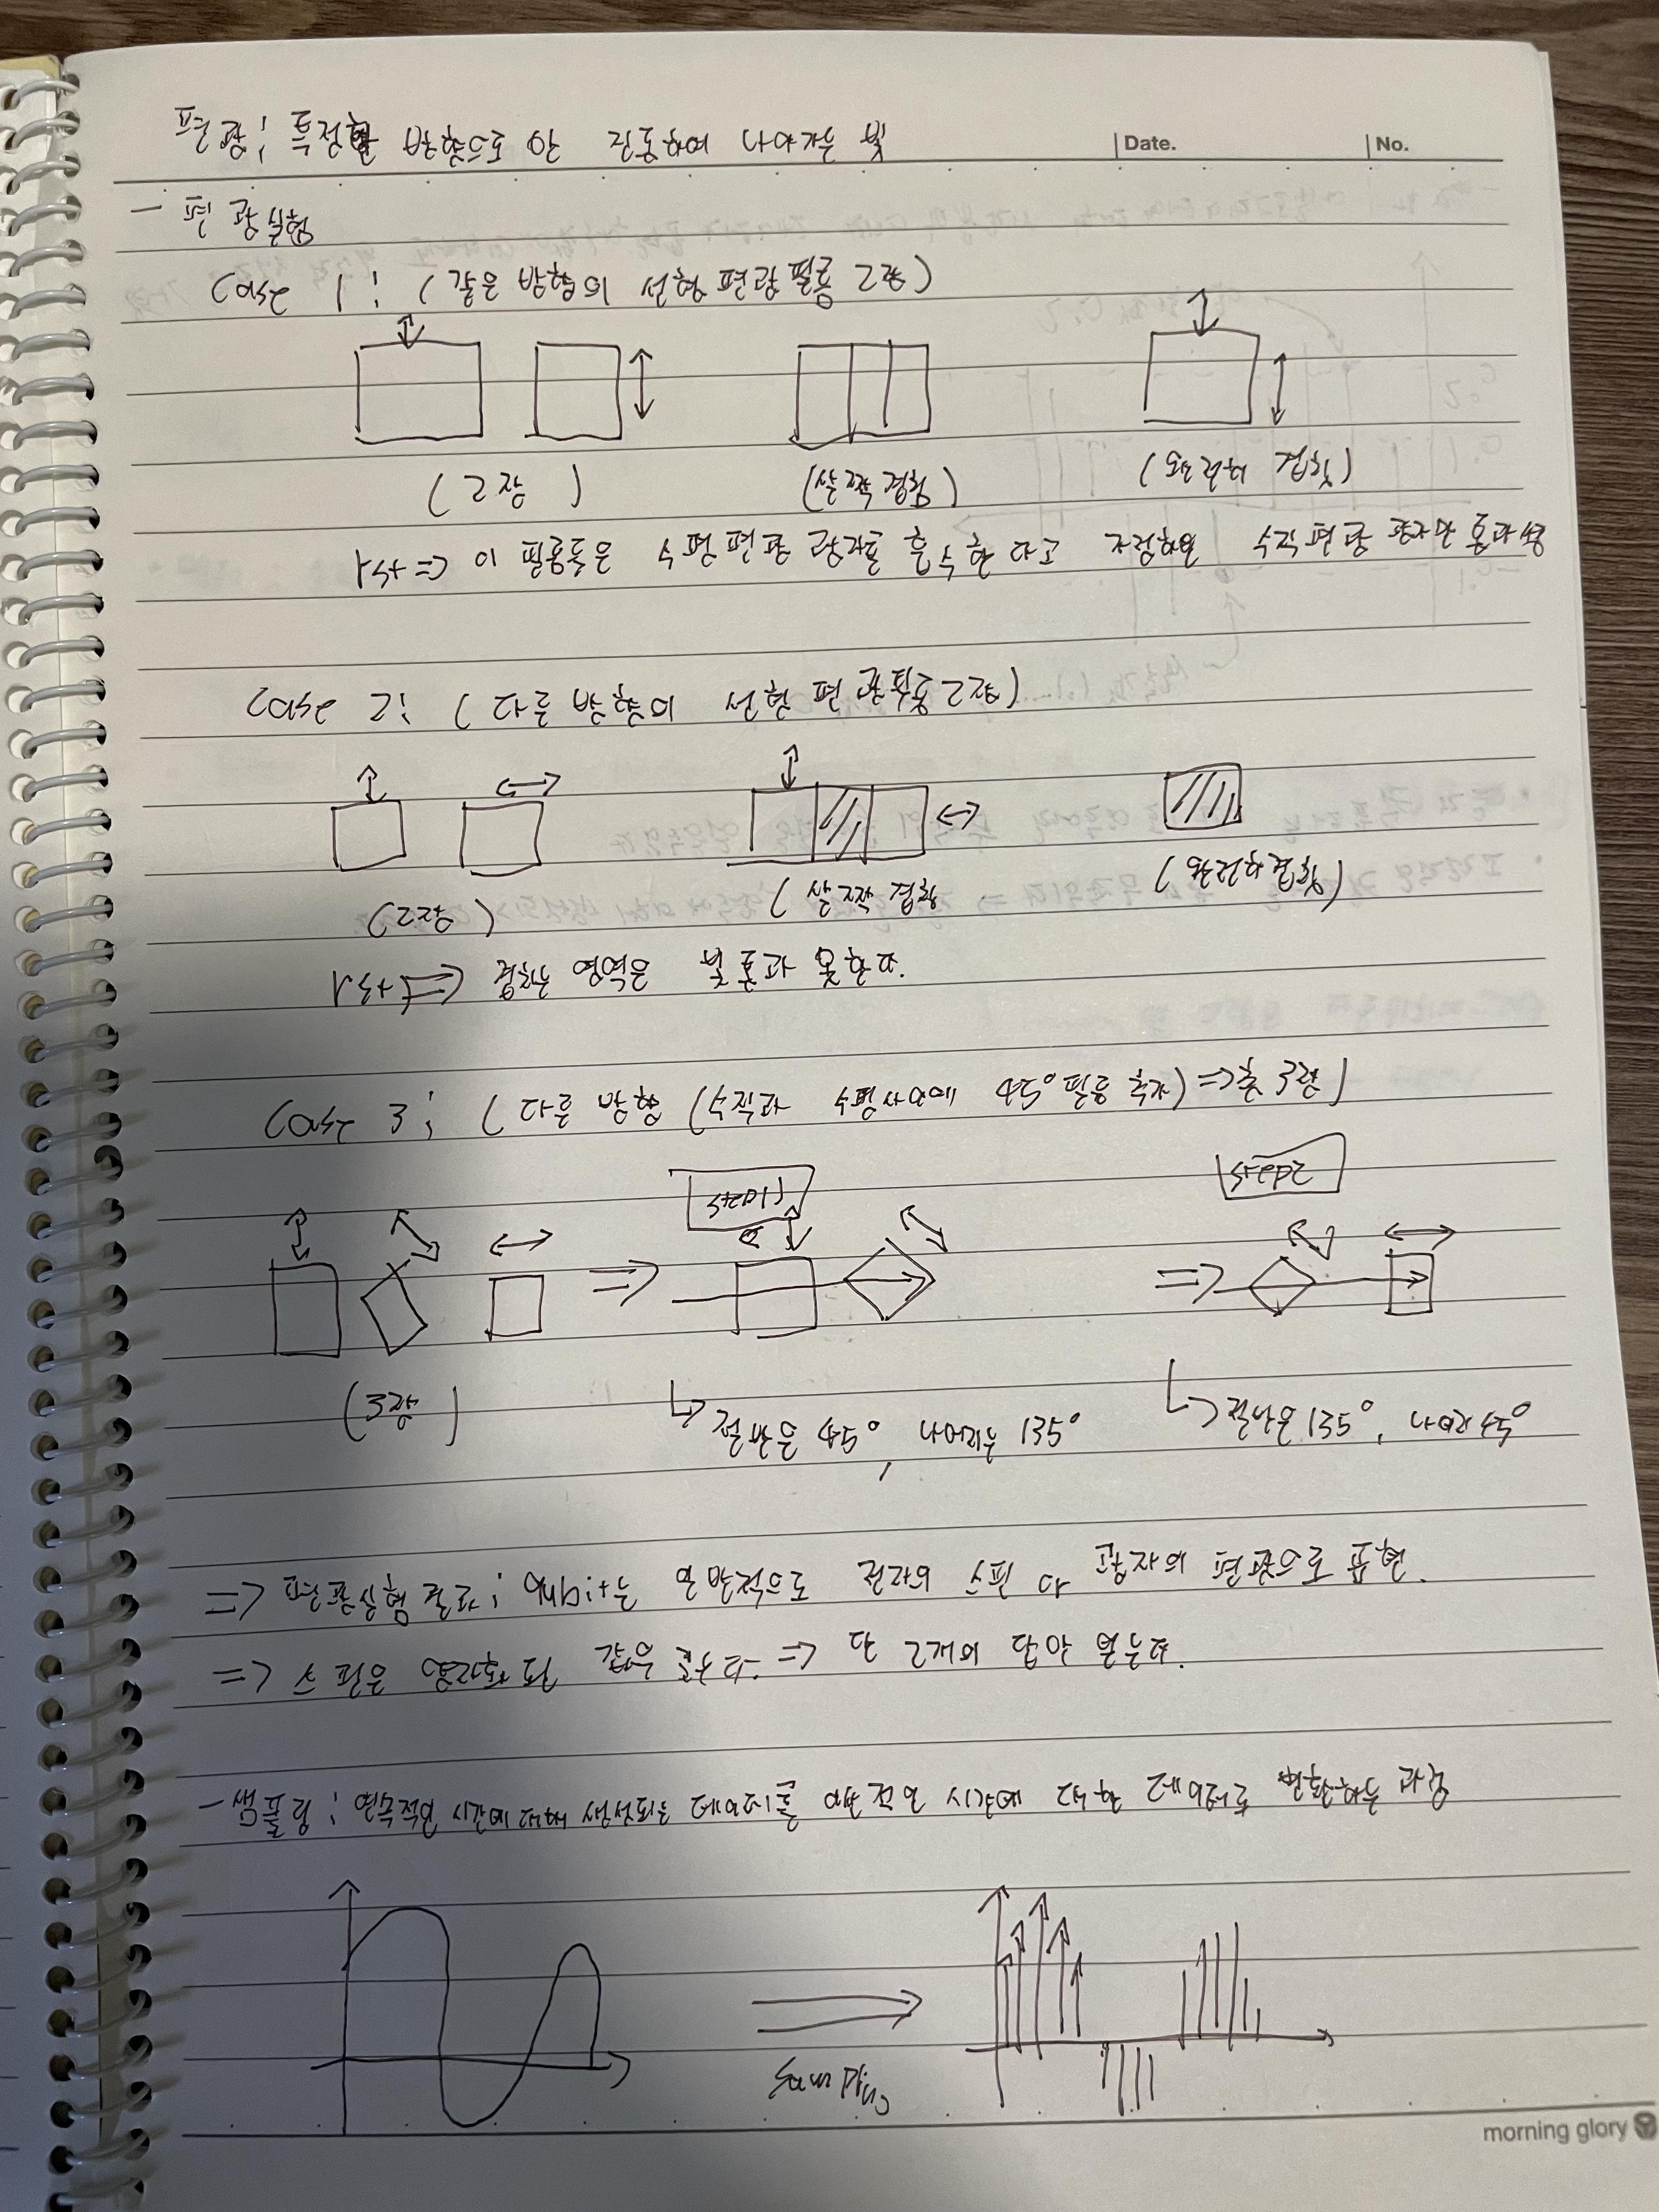 편광 : 특정한 방향으로만 진동하여 나아가는 빛
Date.
No.
- 편광실험
Case 1 : (같은 방향의 선형 편광필름 2장)
(2장)
(살짝 겹침)
(완전히 겹침)
rst => 이 필름들은 수평편광 광자를 흡수한다고 가정하면 수직편광 광자만 통과됨
Case 2 : (다른 방향의 선형 편광필름 2장)
(2장)
(살짝 겹침)
(완전히 겹침)
rst => 겹치는 영역은 빛 통과 못한다.
Case 3 : (다른 방향 (수직과 수평사이에 45° 필름 추가) => 총 3장)
step1
step2
=>
=>
(3장)
절반은 45°, 나머지는 135°
절반은 135°, 나머지 45°
=> 편광실험 결과 : qubit는 일반적으로 전자의 스핀 or 광자의 편광으로 표현.
=> 스핀은 양자화 된 값을 갖는다. => 단 2개의 답만 얻는다.
- 샘플링 : 연속적인 시간에 대해 생성되는 데이터를 이산적인 시간에 대한 데이터로 변환하는 과정
Sampling
morning glory